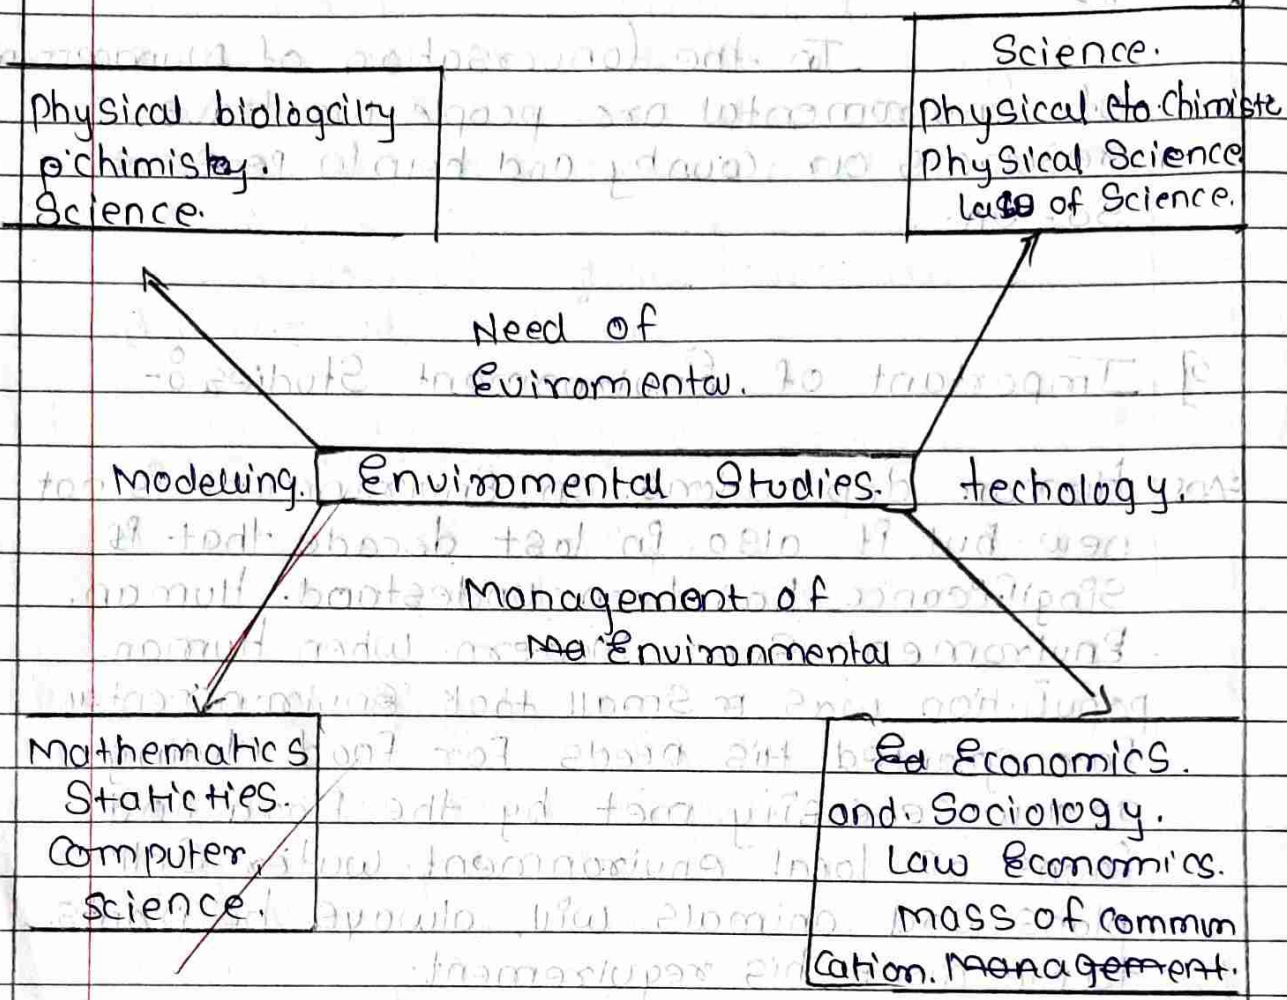 Physical biologcilty
p'chimistey.
Science.
Science.
Physical eto.Chimiste
Physical Science
of Science.
Need of
Eviromental.
Modelling.
Enviromental Studies.
techology.
Management of
Environmental
Mathematics
Staticties.
Computer,
Science.
Economics.
and. Sociology.
Law Economics.
mass of commun
cation. Management.